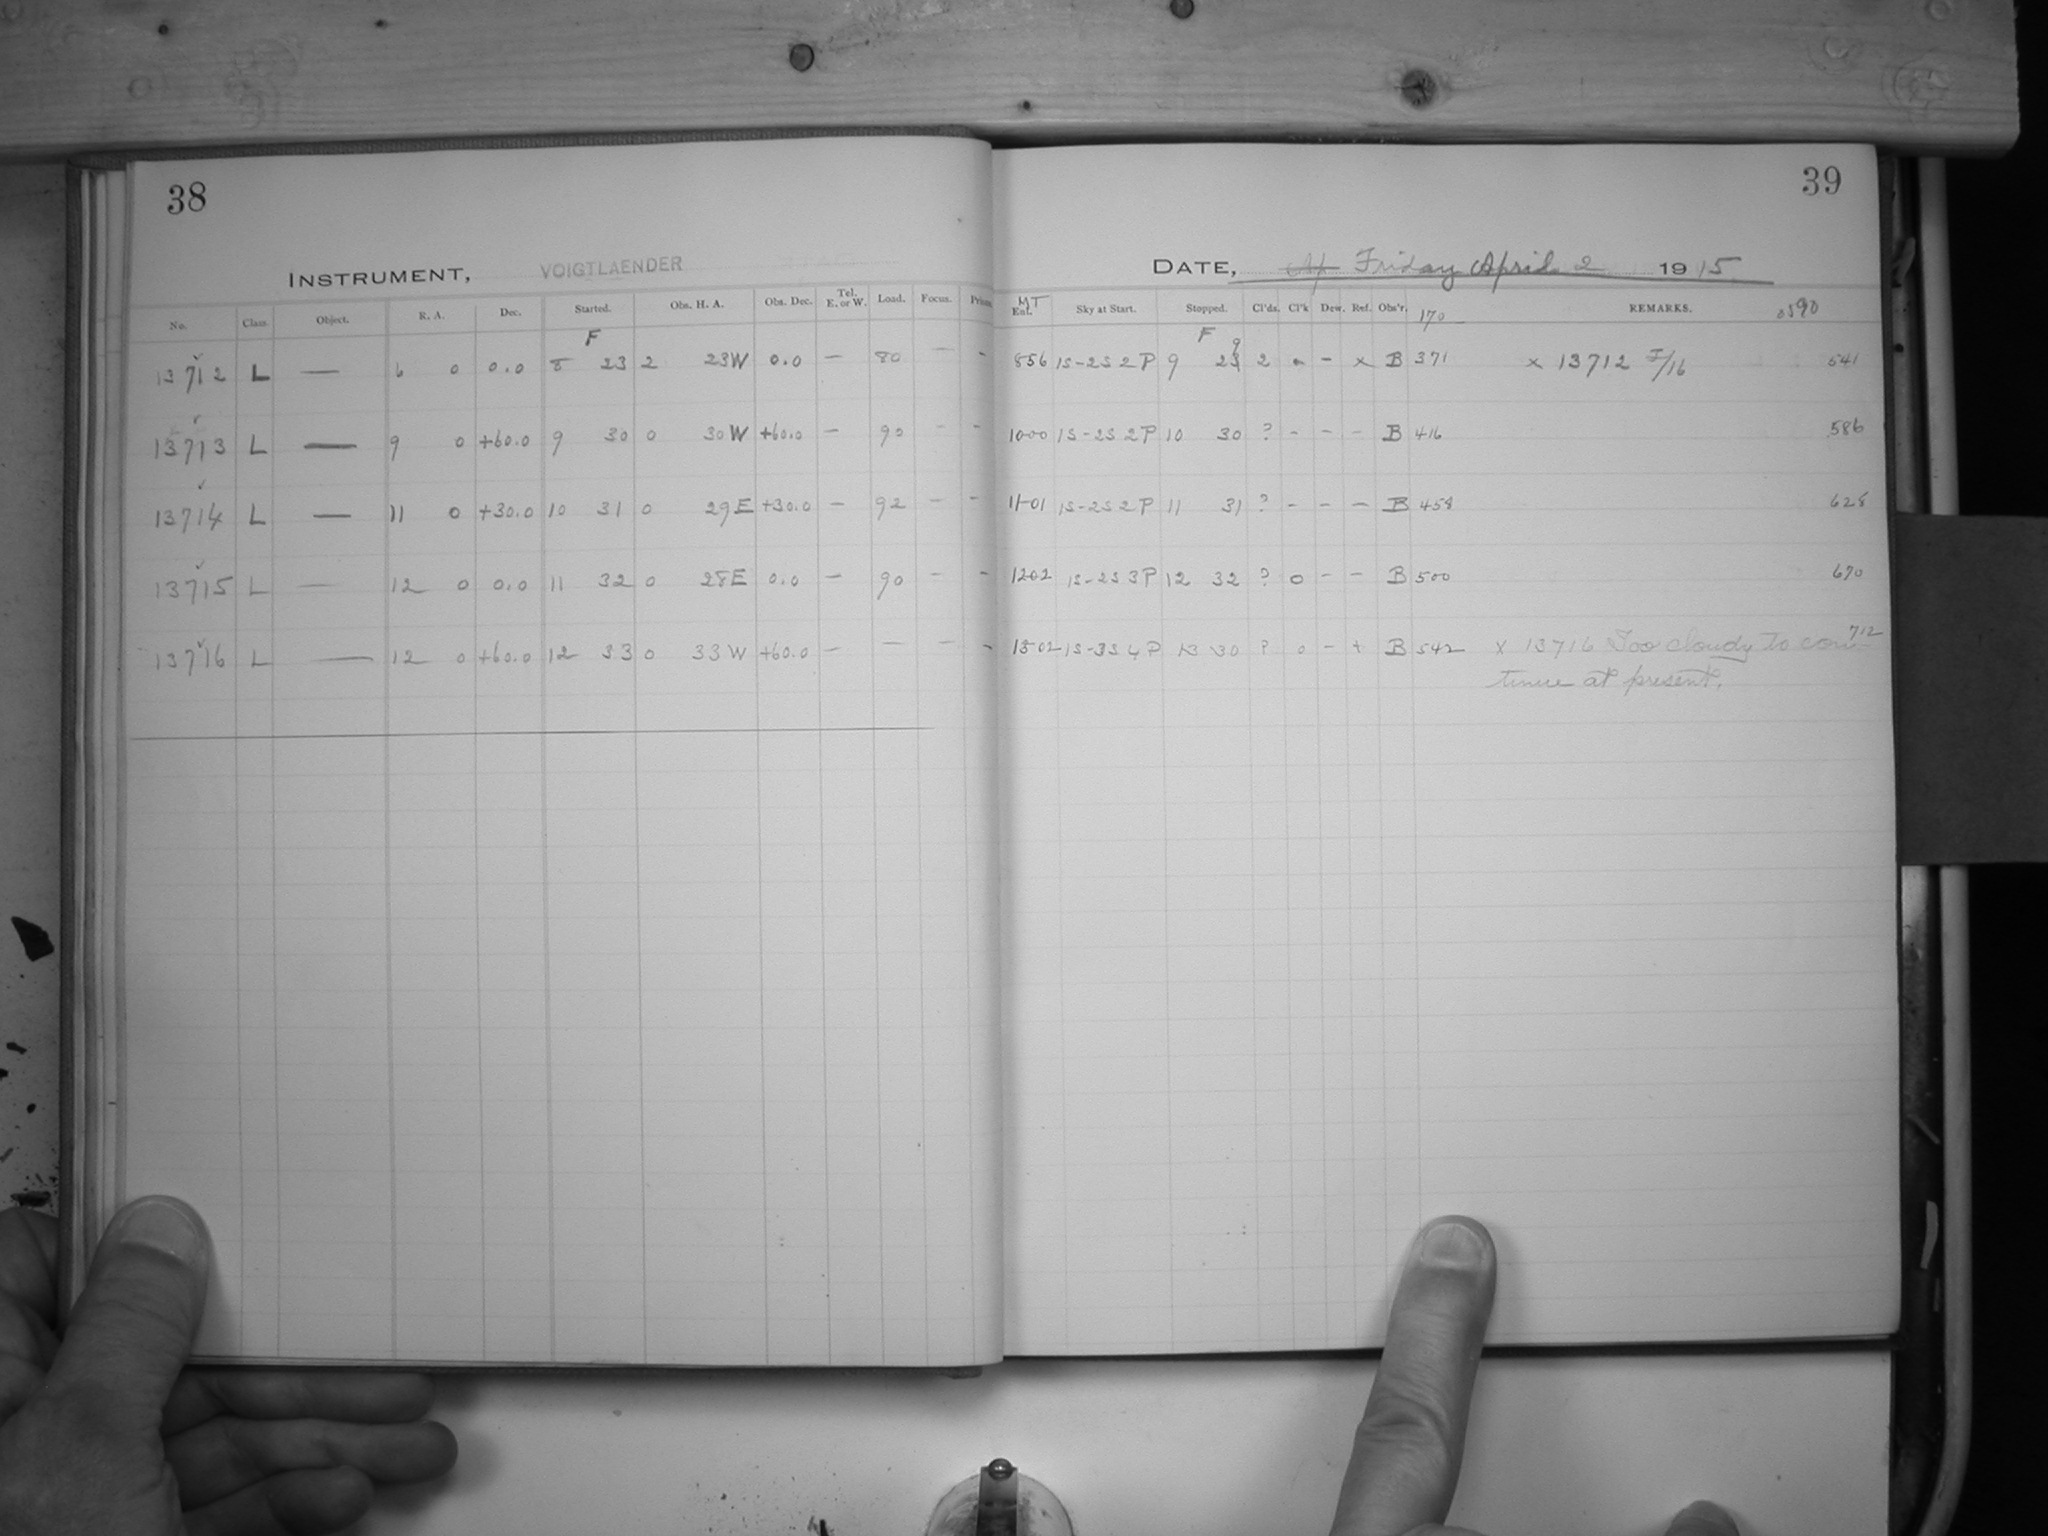 38
INSTRUMENT, VOIGTLAENDER
No. Class Object. R. A. Dec. Started. Obs. H. A. Obs. Dec. Tel. E. or W. Load. Focus. Prism
F
13712 L — 6 0 0.0 8 23 2 23W 0.0 — 80 — -
13713 L — 9 0 +60.0 9 30 0 30W +60.0 — 90 - -
13714 L — 11 0 +30.0 10 31 0 29E +30.0 — 92 - -
13715 L — 12 0 0.0 11 32 0 28E 0.0 — 90 - -
13716 L — 12 0 +60.0 12 33 0 33W +60.0 — — — -
39
DATE, Friday April 2 1915
MT
Ent. Sky at Start. Stopped. Cl'ds. Cl'k Dew. Ref. Obs'r. 170 REMARKS.
F
856 1S-2S 2P 9 2 - x B 371 x 13712 I/16 541
1000 1S-2S 2P 10 30 ? - - - B 416 586
1101 1S-2S 2P 11 31 ? - - - B 458 628
1202 1S-2S 3P 12 32 ? 0 - - B 500 670
1302 1S-3S 4P 13 30 ? 0 - + B 542 x 13716 Too cloudy to con- 712
tinue at present.